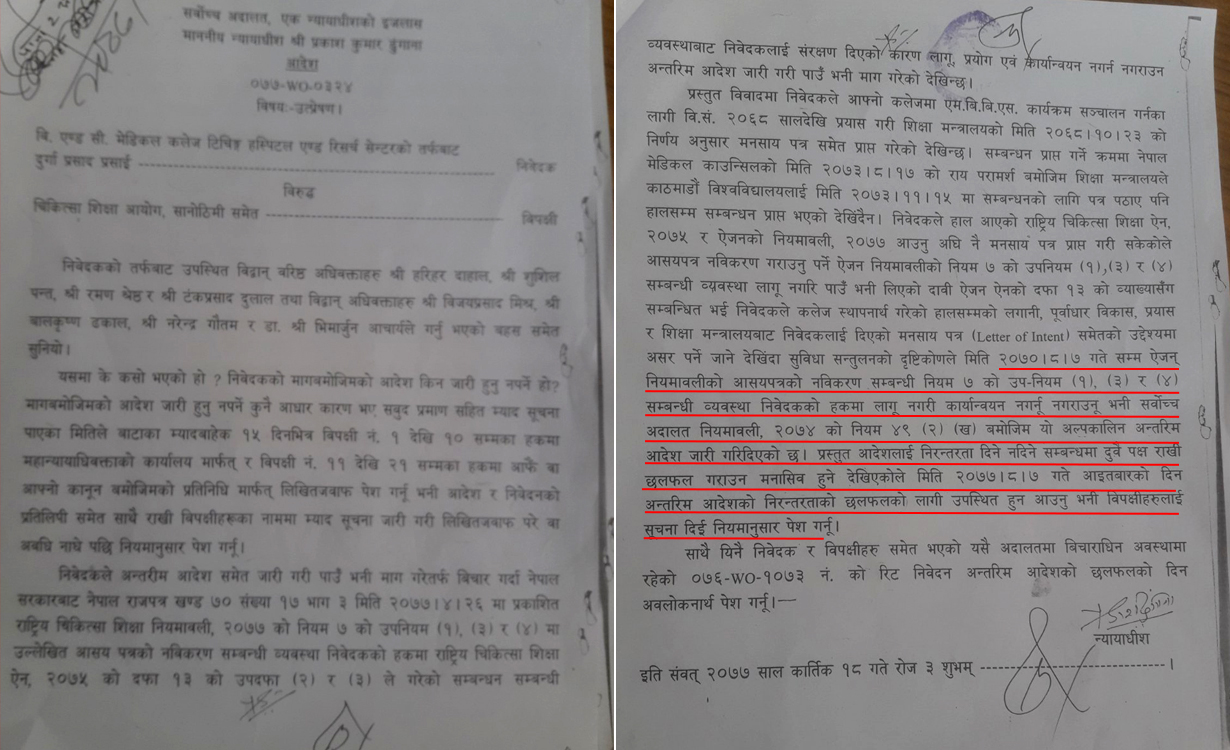 सर्वोच्च अदालत, एक न्यायाधीशको इजलास
माननीय न्यायाधीश श्री प्रकाश कुमार ढुंगाना
आदेश
०७७-WO-०३२४
विषयः-उत्प्रेषण।
बि. एण्ड सी. मेडिकल कलेज टिचिङ्ग हस्पिटल एण्ड रिसर्च सेन्टरको तर्फबाट
दुर्गा प्रसाद प्रसाई ---------- निवेदक
विरुद्ध
चिकित्सा शिक्षा आयोग, सानोठिमी समेत ---------- विपक्षी
निवेदकको तर्फबाट उपस्थित विद्वान् वरिष्ठ अधिवक्ताहरु श्री हरिहर दाहाल, श्री शुशिल
पन्त, श्री रमण श्रेष्ठ र श्री टंकप्रसाद दुलाल तथा विद्वान् अधिवक्ताहरु श्री विजयप्रसाद मिश्र, श्री
बालकृष्ण ढकाल, श्री नरेन्द्र गौतम र डा. श्री भिमार्जुन आचार्यले गर्नु भएको बहस समेत
सुनियो।
यसमा के कसो भएको हो ? निवेदकको मागबमोजिमको आदेश किन जारी हुनु नपर्ने हो?
मागबमोजिमको आदेश जारी हुनु नपर्ने कुनै आधार कारण भए सबुद प्रमाण सहित म्याद सूचना
पाएका मितिले बाटाका म्यादबाहेक १५ दिनभित्र विपक्षी नं. १ देखि १० सम्मका हकमा
महान्यायाधिवक्ताको कार्यालय मार्फत् र विपक्षी नं. ११ देखि २१ सम्मका हकमा आफै वा
आफ्नो कानून बमोजिमको प्रतिनिधि मार्फत् लिखितजवाफ पेश गर्नु भनी आदेश र निवेदनको
प्रतिलिपी समेत साथै राखी विपक्षीहरूका नाममा म्याद सूचना जारी गरी लिखितजवाफ परे वा
अवधि नाघे पछि नियमानुसार पेश गर्नू।
निवेदकले अन्तरीम आदेश समेत जारी गरी पाउँ भनी माग गरेतर्फ बिचार गर्दा नेपाल
सरकारबाट नेपाल राजपत्र खण्ड ७० संख्या १७ भाग ३ मिति २०७७।४।२६ मा प्रकाशित
राष्ट्रिय चिकित्सा शिक्षा नियमावली, २०७७ को नियम ७ को उपनियम (१), (३) र (४) मा
उल्लेखित आसय पत्रको नविकरण सम्बन्धी व्यवस्था निवेदकको हकमा राष्ट्रिय चिकित्सा शिक्षा
ऐन, २०७५ को दफा १३ को उपदफा (२) र (३) ले गरेको सम्बन्धन सम्बन्धी
व्यवस्थाबाट निवेदकलाई संरक्षण दिएको कारण लागू, प्रयोग एवं कार्यान्वयन नगर्न नगराउन
अन्तरिम आदेश जारी गरी पाउँ भनी माग गरेको देखिन्छ।
प्रस्तुत विवादमा निवेदकले आफ्नो कलेजमा एम.बि.बि.एस. कार्यक्रम सञ्चालन गर्नका
लागी वि.सं. २०६८ सालदेखि प्रयास गरी शिक्षा मन्त्रालयको मिति २०६८।१०।२३ को
निर्णय अनुसार मनसाय पत्र समेत प्राप्त गरेको देखिन्छ। सम्बन्धन प्राप्त गर्ने क्रममा नेपाल
मेडिकल काउन्सिलको मिति २०७३।८।१७ को राय परामर्श बमोजिम शिक्षा मन्त्रालयले
काठमाडौं विश्वविद्यालयलाई मिति २०७३।११।१५ मा सम्बन्धनको लागि पत्र पठाए पनि
हालसम्म सम्बन्धन प्राप्त भएको देखिंदैन। निवेदकले हाल आएको राष्ट्रिय चिकित्सा शिक्षा ऐन,
२०७५ र ऐजनको नियमावली, २०७७ आउनु अघि नै मनसाय पत्र प्राप्त गरी सकेकोले
आसयपत्र नविकरण गराउनु पर्ने ऐजन नियमावलीको नियम ७ को उपनियम (१),(३) र (४)
सम्बन्धी व्यवस्था लागू नगरि पाउँ भनी लिएको दावी ऐजन ऐनको दफा १३ को व्याख्यासँग
सम्बन्धित भई निवेदकले कलेज स्थापनार्थ गरेको हालसम्मको लगानी, पूर्वाधार विकास, प्रयास
र शिक्षा मन्त्रालयबाट निवेदकलाई दिएको मनसाय पत्र (Letter of Intent) समेतको उद्देश्यमा
असर पर्ने जाने देखिंदा सुविधा सन्तुलनको दृष्टिकोणले मिति २०७०।८।७ गते सम्म ऐजन्
नियमावलीको आसयपत्रको नविकरण सम्बन्धी नियम ७ को उप-नियम (१), (३) र (४)
सम्बन्धी व्यवस्था निवेदकको हकमा लागू नगरी कार्यान्वयन नगर्नू नगराउनू भनी सर्वोच्च
अदालत नियमावली, २०७४ को नियम ४९ (२) (ख) बमोजिम यो अल्पकालिन अन्तरिम
आदेश जारी गरिदिएको छ। प्रस्तुत आदेशलाई निरन्तरता दिने नदिने सम्बन्धमा दुवै पक्ष राखी
छलफल गराउन मनासिव हुने देखिएकोले मिति २०७७।८।७ गते आइतबारको दिन
अन्तरिम आदेशको निरन्तरताको छलफलको लागी उपस्थित हुन आउनु भनी विपक्षीहरुलाई
सूचना दिई नियमानुसार पेश गर्नू।
साथै यिनै निवेदक र विपक्षीहरु समेत भएको यसै अदालतमा बिचाराधिन अवस्थामा
रहेको ०७६-WO-१०७३ नं. को रिट निवेदन अन्तरिम आदेशको छलफलको दिन
अवलोकनार्थ पेश गर्नू।—
न्यायाधीश
इति संवत् २०७७ साल कार्तिक १८ गते रोज ३ शुभम् ----------।